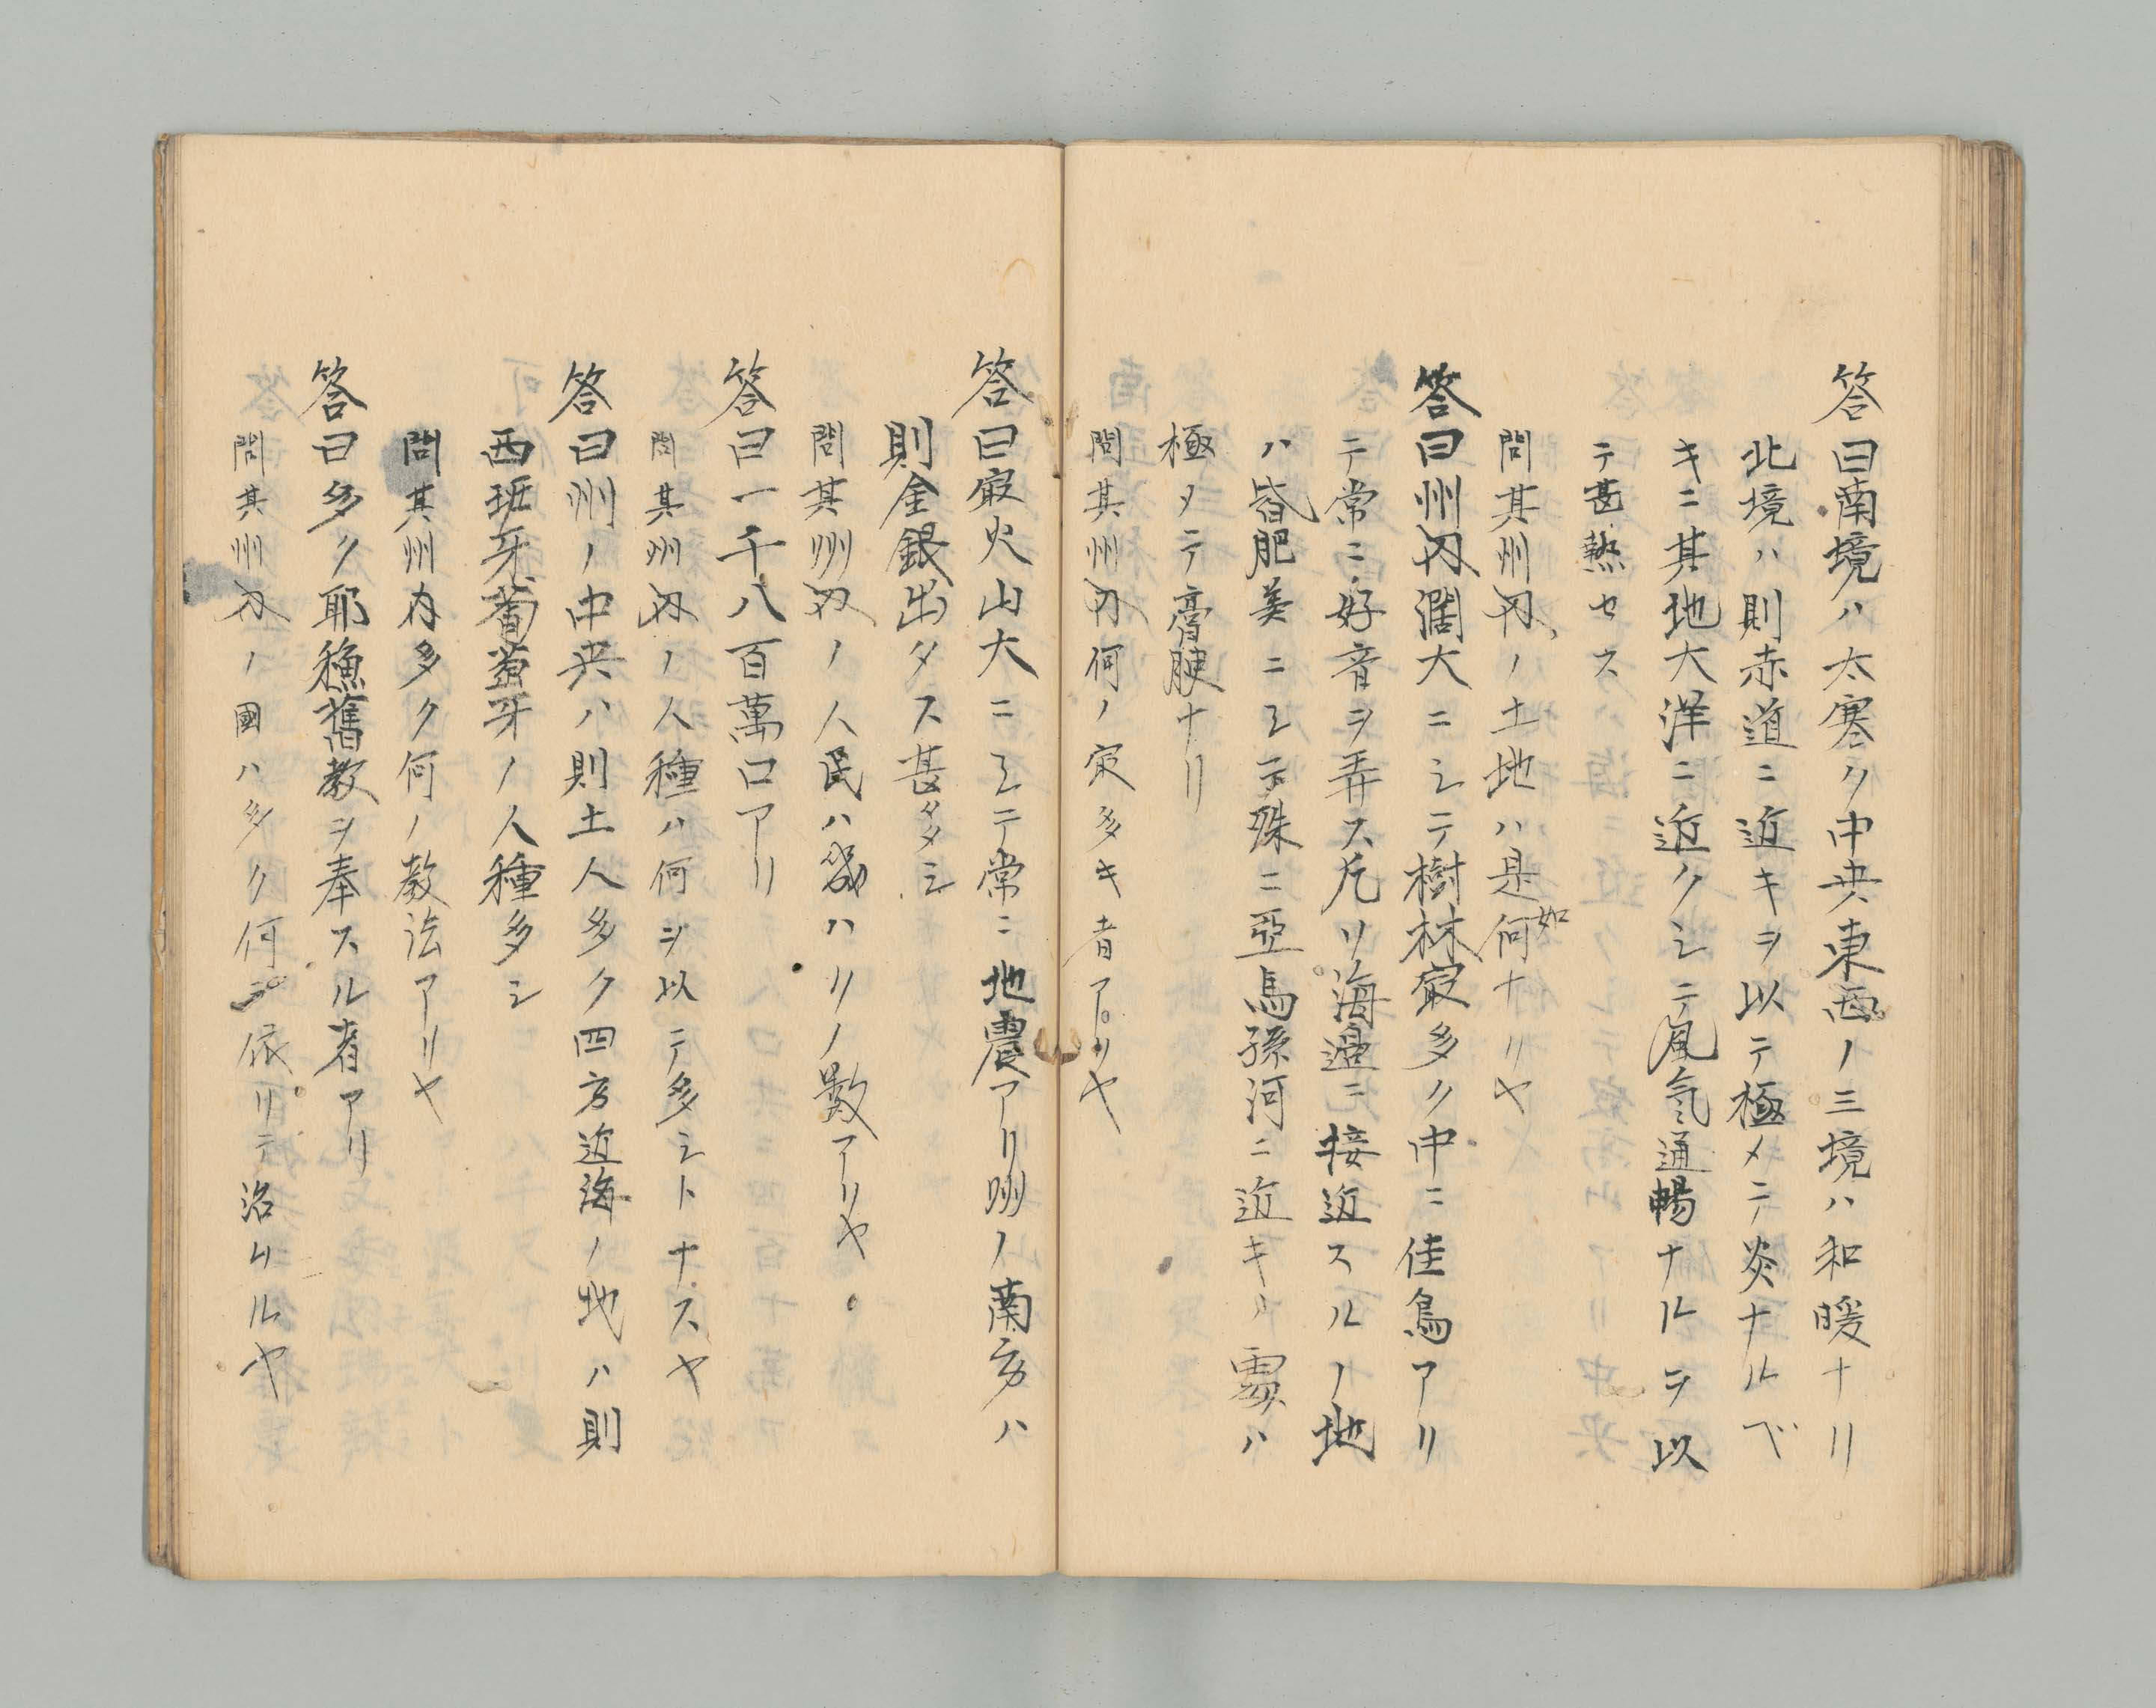 答曰南境ハ太寒ク中央東西ノ三境ハ和暖ナリ
北境ハ則赤道ニ近キヲ以テ極メテ炎ナルベ
キニ其地大洋ニ近クシテ風気通暢ナルヲ以
テ甚熱セス
問其州内ノ土地ハ是如何ナリヤ
答曰州内濶大ニシテ樹林寂多ク中ニ佳鳥アリ
テ常ニ好音ヲ弄ス凡ソ海邉ニ接近スルノ地
ハ皆肥美ニシテ殊ニ亞馬孫河ニ近キノ處ハ
極メテ膏腴ナリ
問其州内何ノ寂多キ者アリヤ
答曰寂火山大ニシテ常ニ地震アリ州ノ南方ハ
則金銀出タス甚タ多シ
問其州内ノ人民ハ幾ハクノ數アリヤ
答曰一千八百萬口アリ
問其州内ノ人種ハ何ヲ以テ多シトナスヤ
答曰州ノ中央ハ則土人多ク四方近海ノ地ハ則
西班牙葡萄牙ノ人種多シ
問其州内多ク何ノ教法アリヤ
答曰多ク耶穌舊教ヲ奉スル者アリ
問其州内ノ國ハ多ク何ニ依リテ治ムルヤ